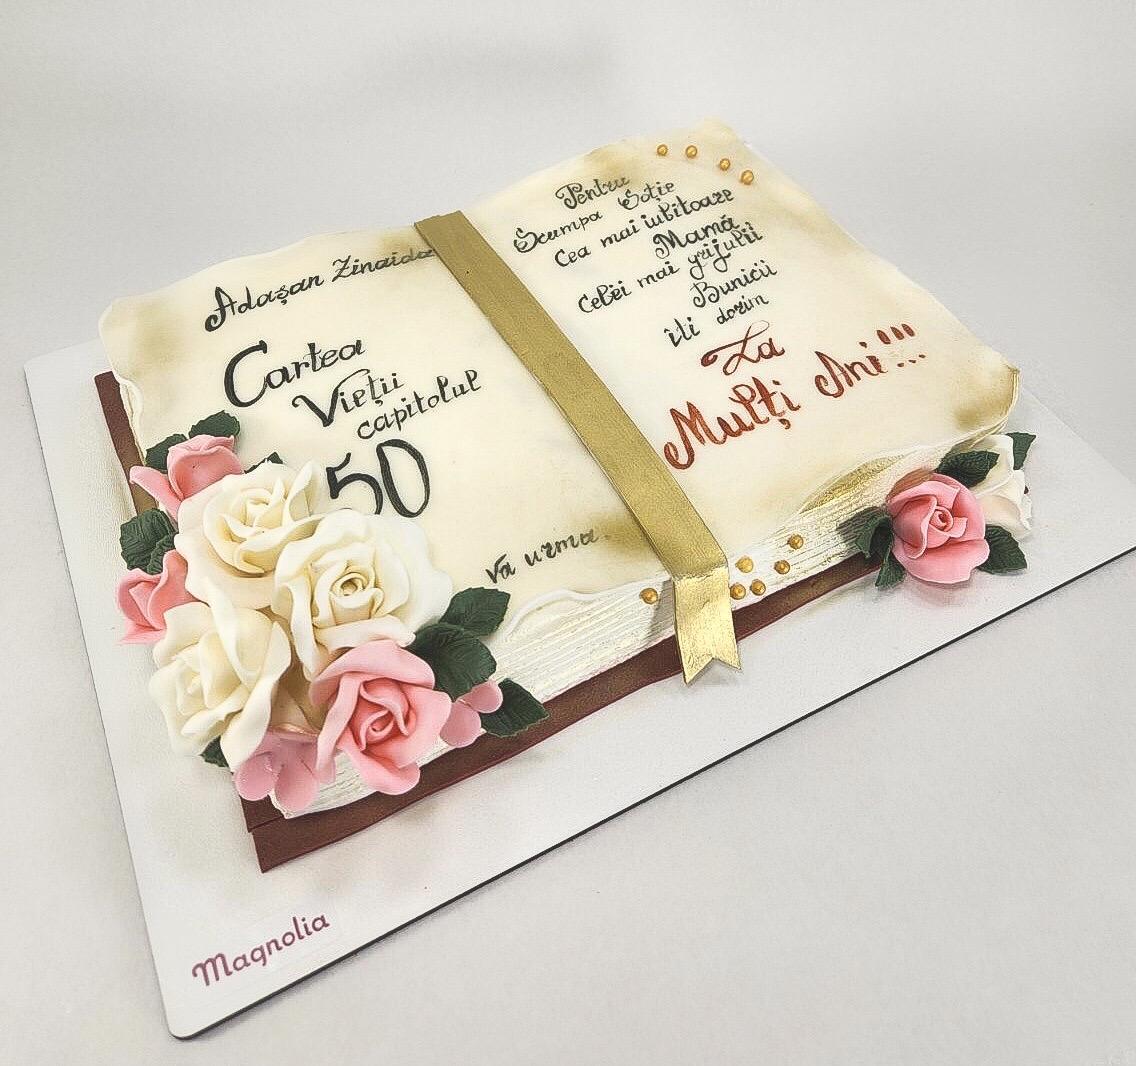 Adașan Zinaida
Cartea
Vieții
capitolul
50
va urma.
Pentru
Scumpa Soție
Cea mai iubitoare
Mamă
Celei mai grijulii
Bunicii
îti dorim
La
Mulți Ani!!!...
Magnolia